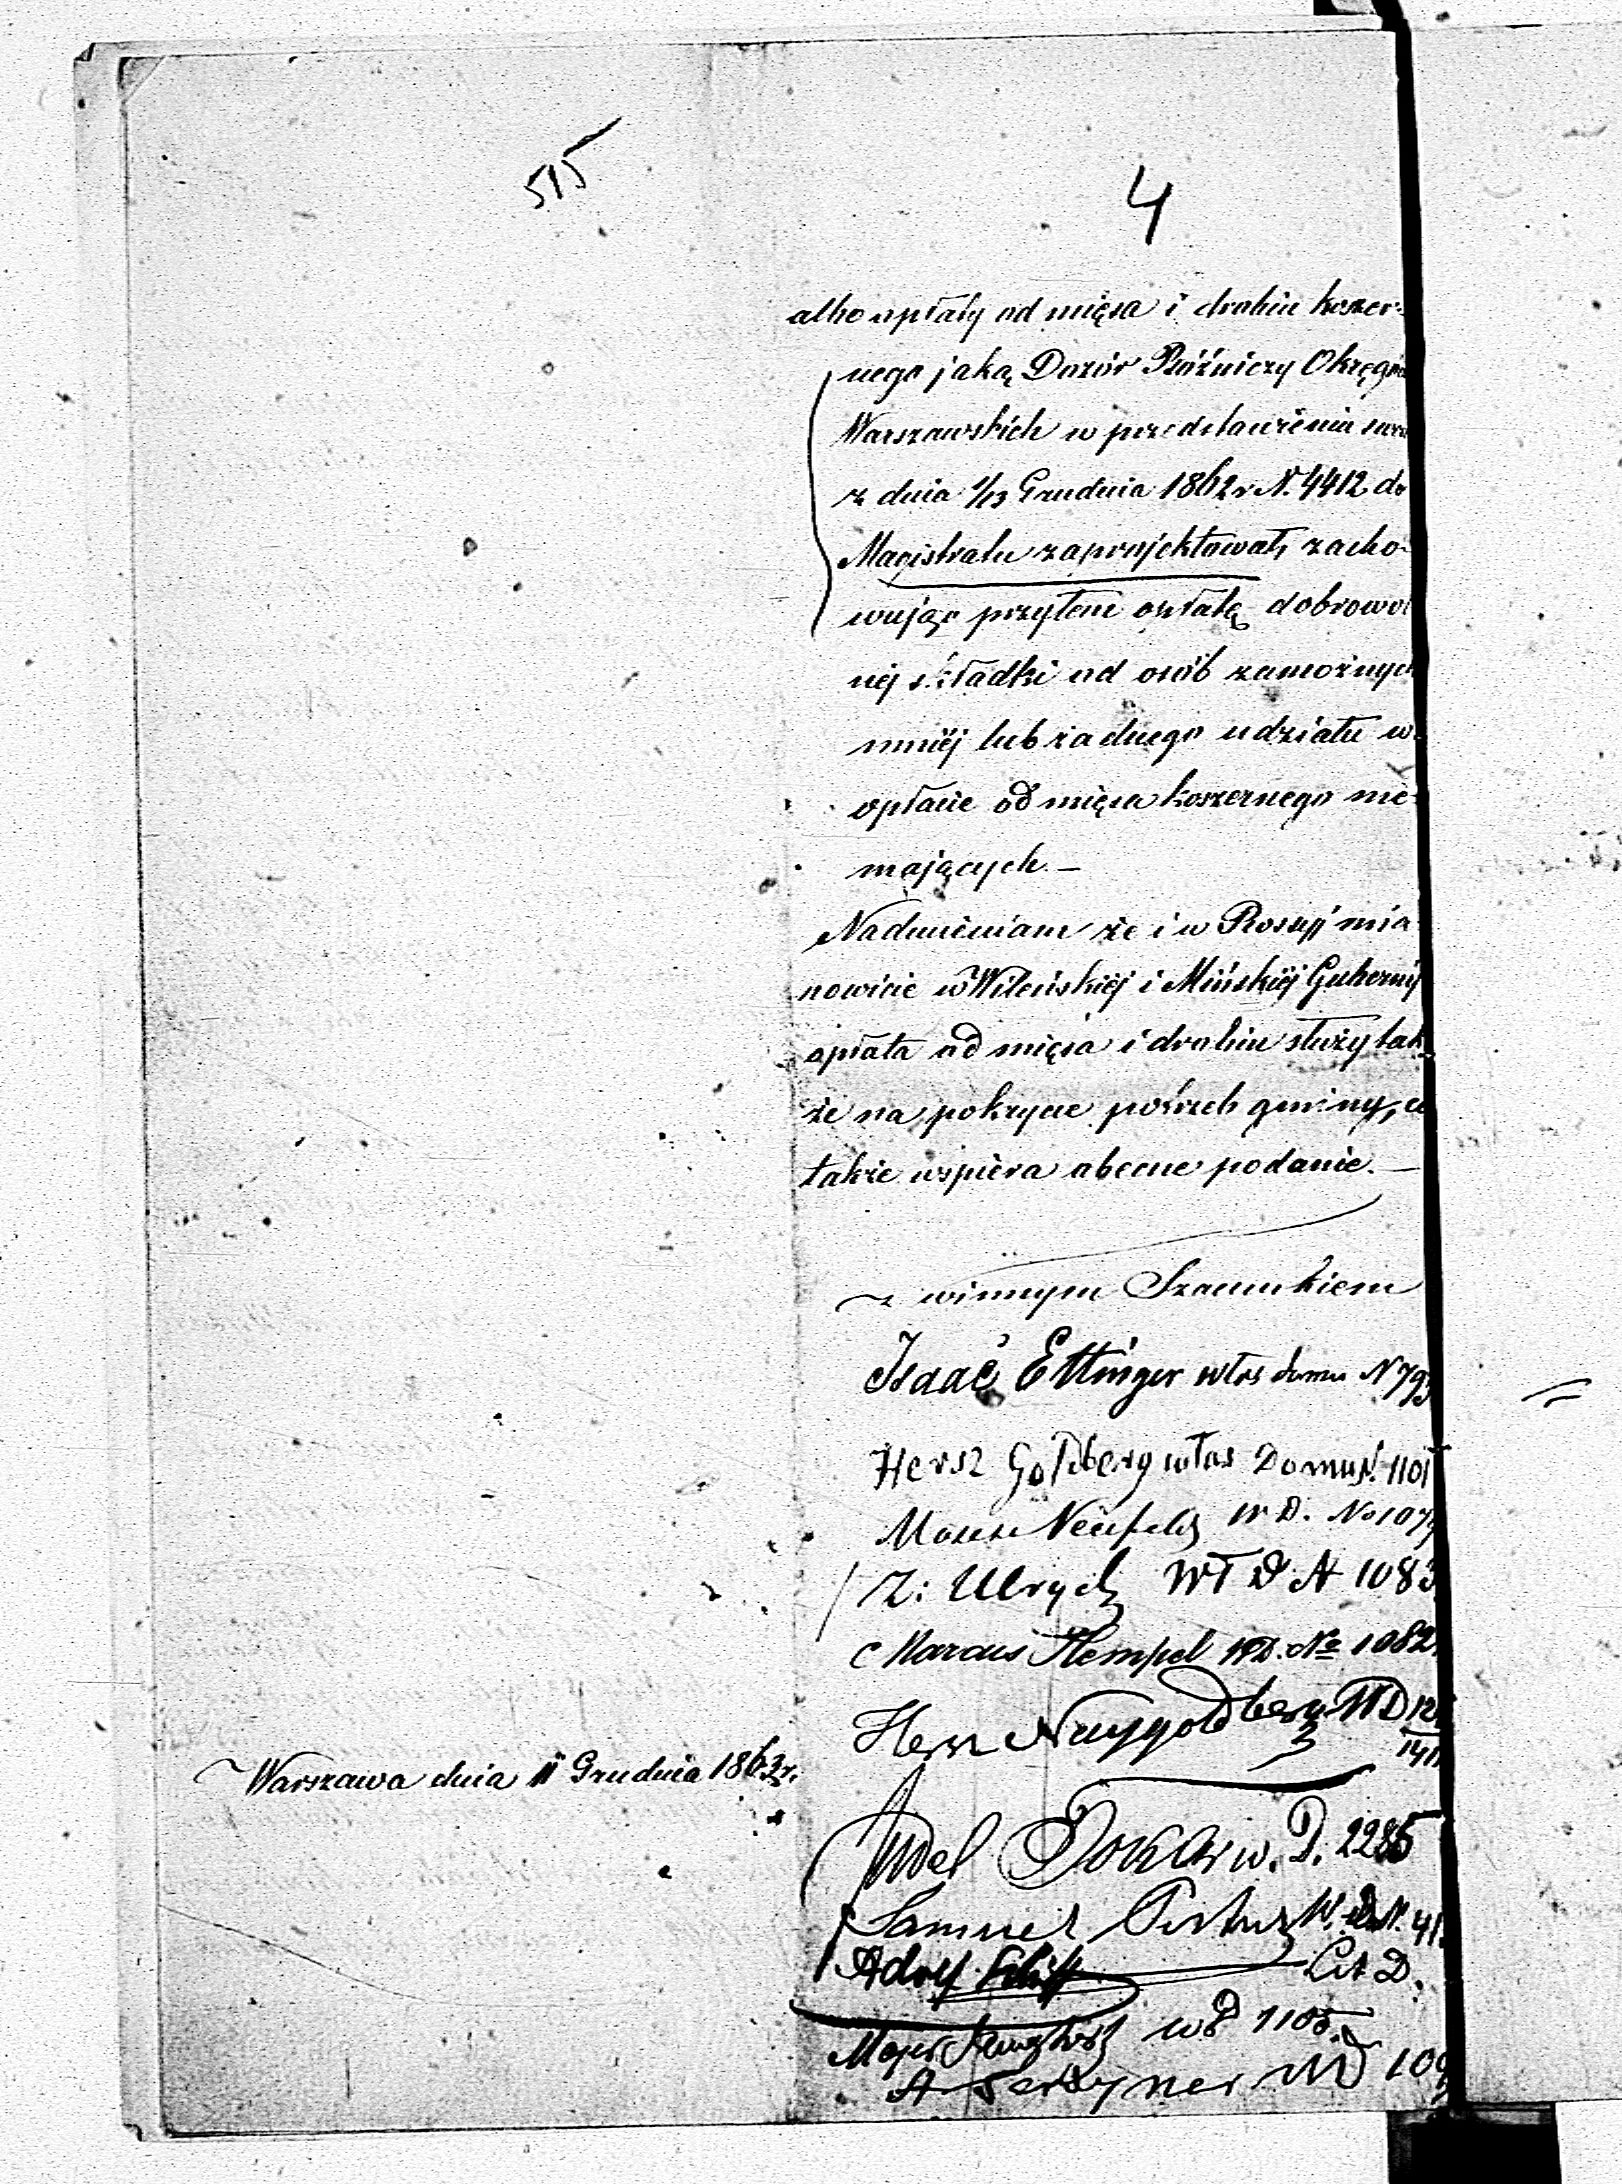 515
4
albo opłaty od mięsa i drobiu koszer-
nego jaką Dozór Bóźniczy Okręgów
Warszawskich w przedstawieniu
z dnia 1/13 Grudnia 1862 r N. 4412 do
Magistratu zaprojektował, zacho-
wując przytem opłatę dobrowol
néj składki od osób zamożnych
mniéj lub żadnego udziału w
opłacie od mięsa koszernego nie
mających. —
Nadmieniam że i w Rossyi mia
nowicie w Wileńskiéj i Mińskiéj Gubernij
opłata od mięsa i drobiu służy tak
że na pokrycie potrzeb gminy, co
także wspiera obecne podanie. —
z winnym Szacunkiem
Isaac Ettinger włas domu N 793
Hersz Goldberg włas Domu N. 1101
Neufeld W D. No 107
Z: Ulrych WŁ D N 1083
Marcus Hempel WD. No 1082
Hersz Naygoldberg WD
1411
Warszawa dnia 11 Grudnia 1863 r.
Judel w. D. 2285
Samuel W. D. N. 41
Adolf Lit D.
Majer wD 1105
A WD 109